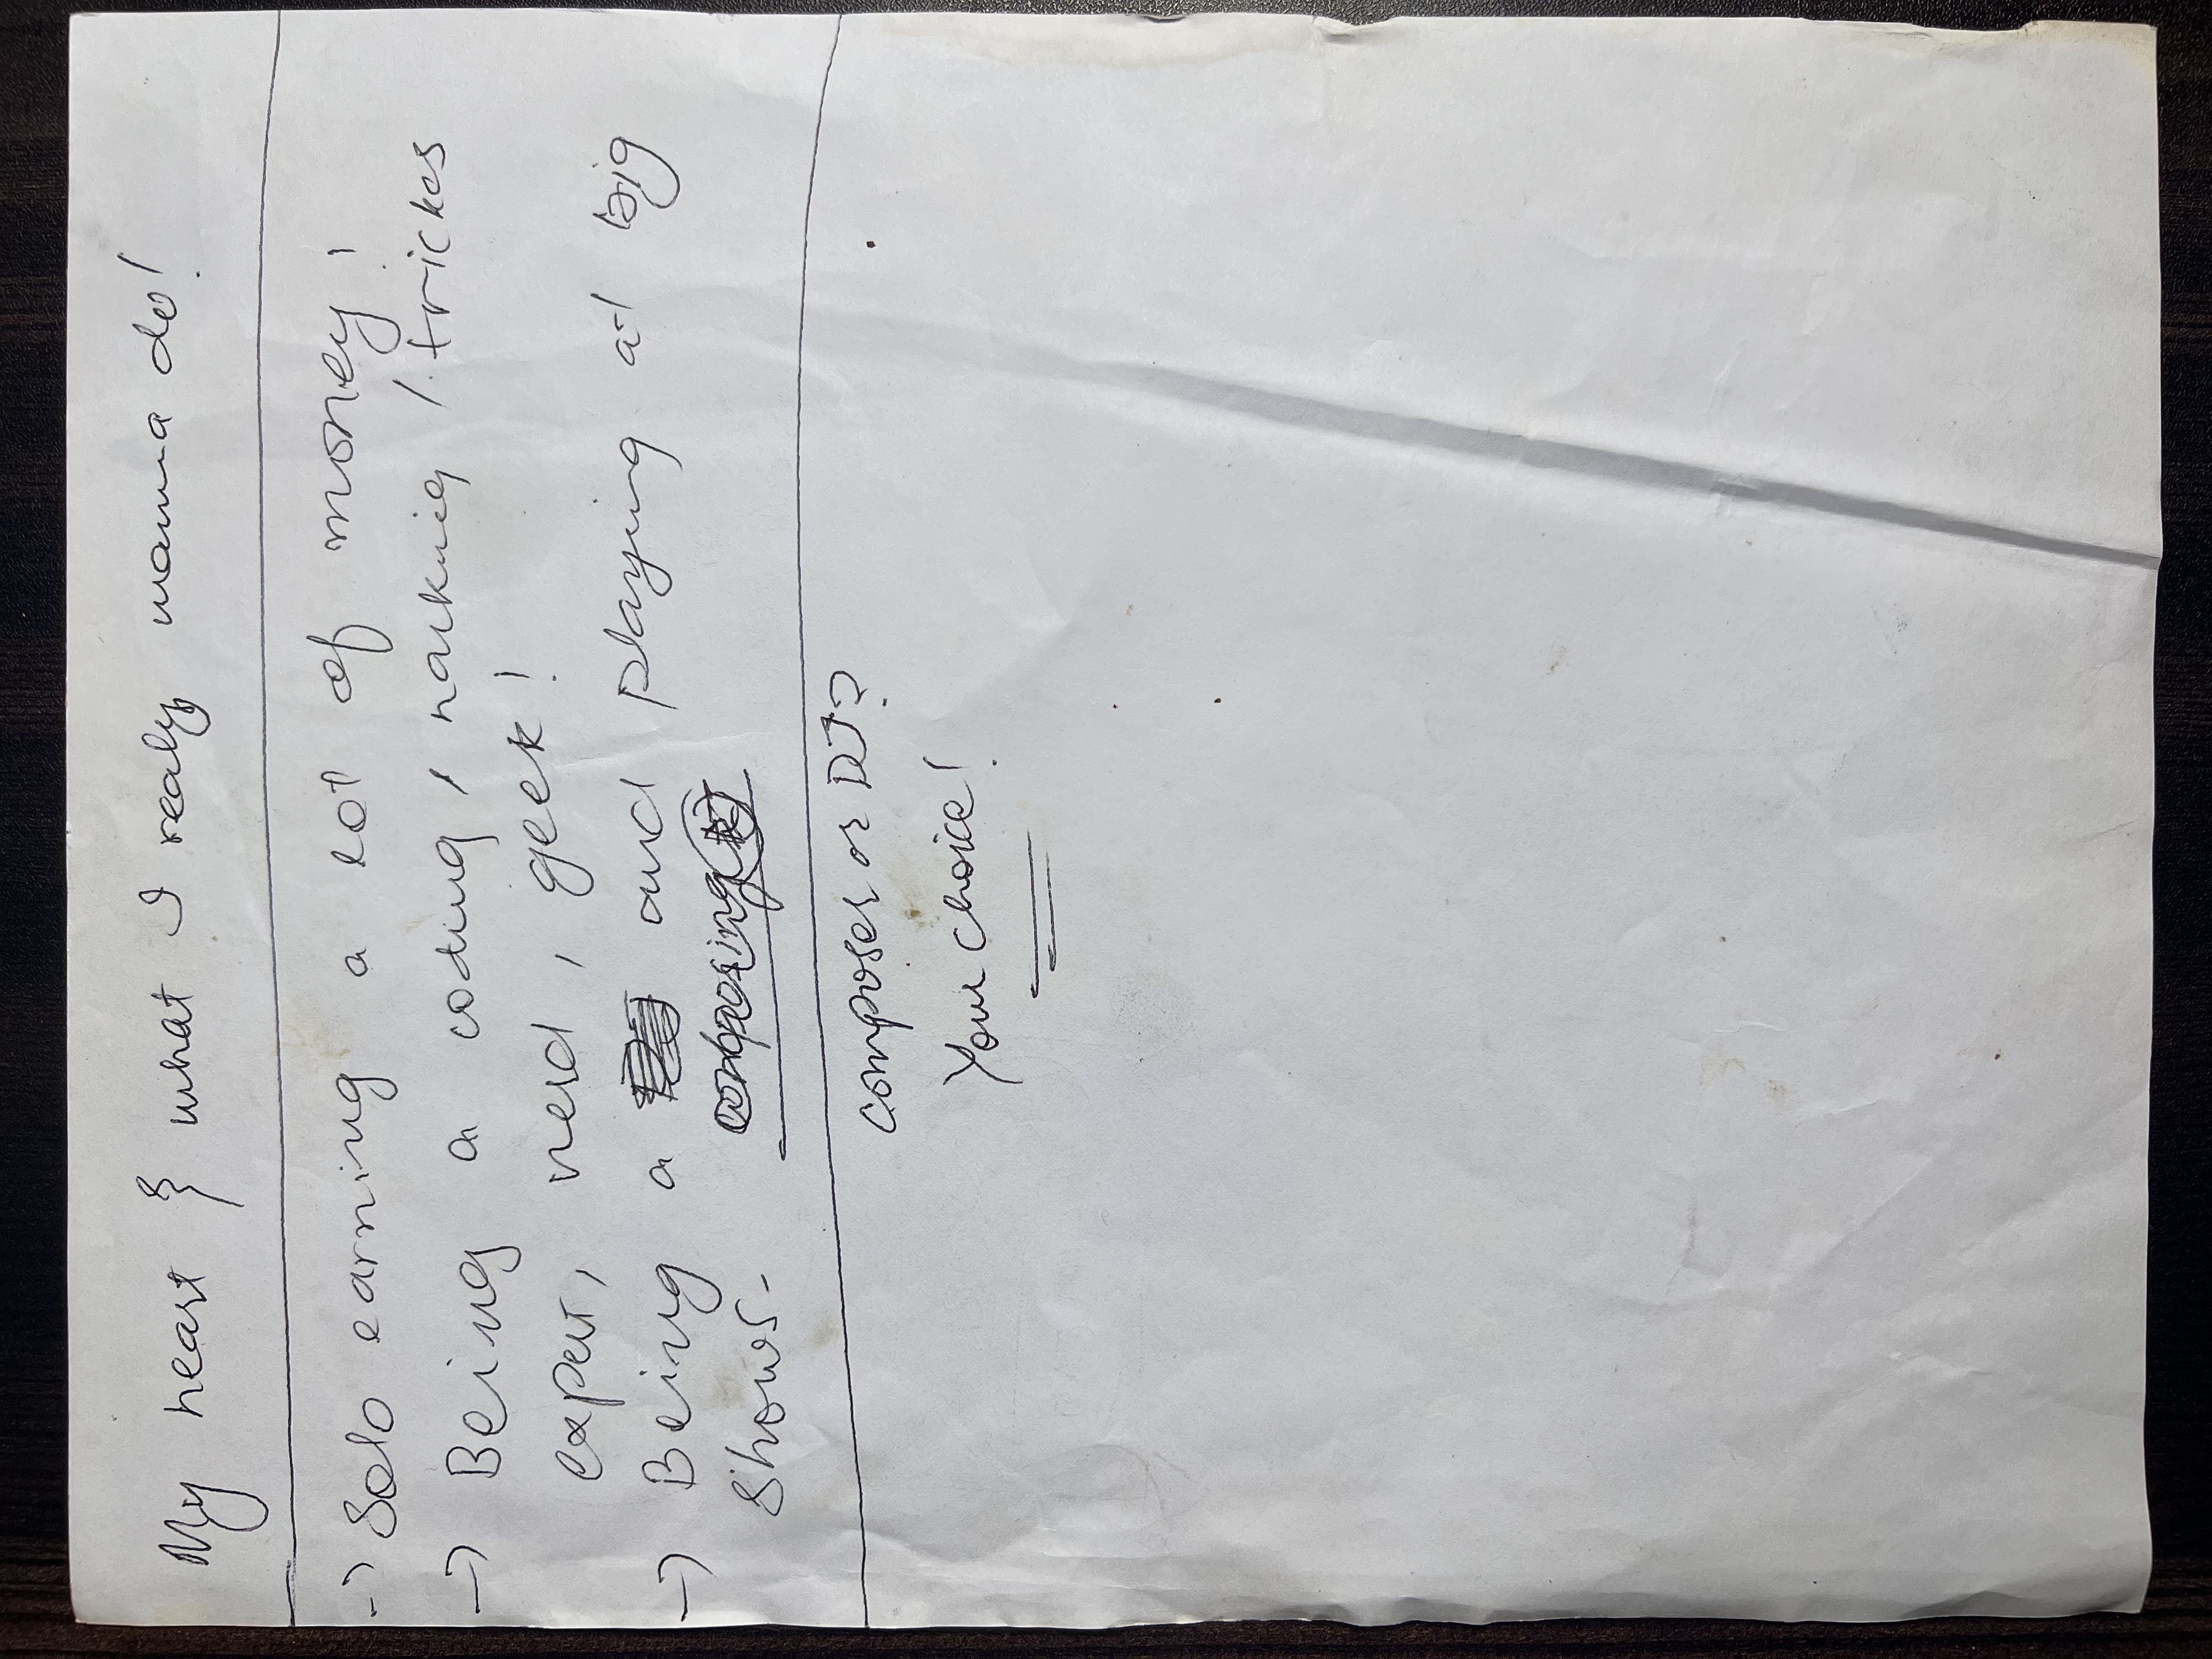 My heart & what I really wanna do!
-> Solo earning a lot of money!
-> Being a coding, hacking, tricks
expert, nerd, geek!
-> Being a and playing at big
shows. composing
composer or DJ?
Your choice!